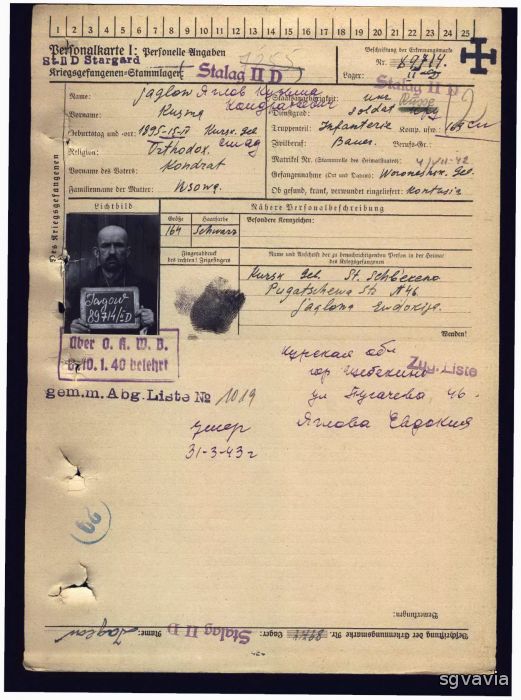 1 2 3 4 5 6 7 8 9 10 11 12 13 14 15 16 17 18 19 20 21 22 23 24 25
Personalkarte I: Personelle Angaben
Beschriftung der Erkennungsmarke
St.II D Stargard
Nr. 89714
Kriegsgefangenen-Stammlager: Stalag II D
Lager: II-D
Stalag II D
Des Kriegsgefangenen
Name: Jaglow Яглов Кузьма
Кондратович
Staatsangehörigkeit:
Vorname: Kusma
Dienstgrad: Soldat
Geburtstag und -ort: 1895-15-11 Kursk. Geb.
Truppenteil: Infanterie Komp. usw.:
165 cm
Religion: Orthodox.
Zivilberuf: Bauer. Berufs-Gr.:
Vorname des Vaters: Kondrat
Matrikel Nr. (Stammrolle des Heimatstaates)
Gefangennahme (Ort und Datum): Woronesh. Geb.
Familienname der Mutter: Usowa
Ob gesund, krank, verwundet eingeliefert: Kontusia
Lichtbild
Nähere Personalbeschreibung
Größe
Haarfarbe
Besondere Kennzeichen:
164
Schwarz
Fingerabdruck
des rechten! Zeigefingers
Name und Anschrift der zu benachrichtigenden Person in der Heimat
des Kriegsgefangenen
Kursk Geb. St. Schebekeno
Pugatschewa St. № 46
Jaglowa Ewdokija.
Jagow
89714/IID
Wenden!
Über O. K. W. B.
10.1.40 belehrt
Курская обл
гор Щебекино
Zug. Liste
ул Пугачева, 46.
Яглова Евдокия
gem.m. Abg. Liste № 1019
умер
31-3-43г
Bemerkungen:
Beschriftung der Erkennungsmarke Nr.
Lager: Stalag II D
Name: Jaglow
sgvavia